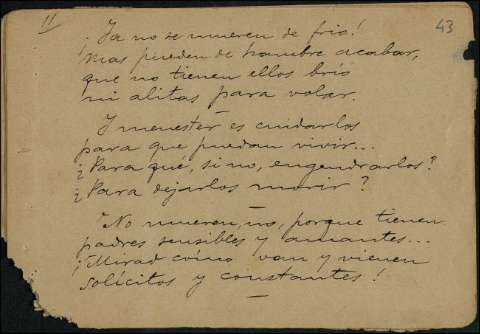 11
43
¡Ya no se mueren de frio!
Mas pueden de hambre acabar,
que no tienen ellos brío
ni alitas para volar.
Y menester es cuidarlos
para que puedan vivir...
¿Para qué, si no, engendrarlos?
¿Para dejarlos morir?
No mueren, no, porque tienen
padres sensibles y amantes...
¡Mirad cómo van y vienen
solícitos y constantes!